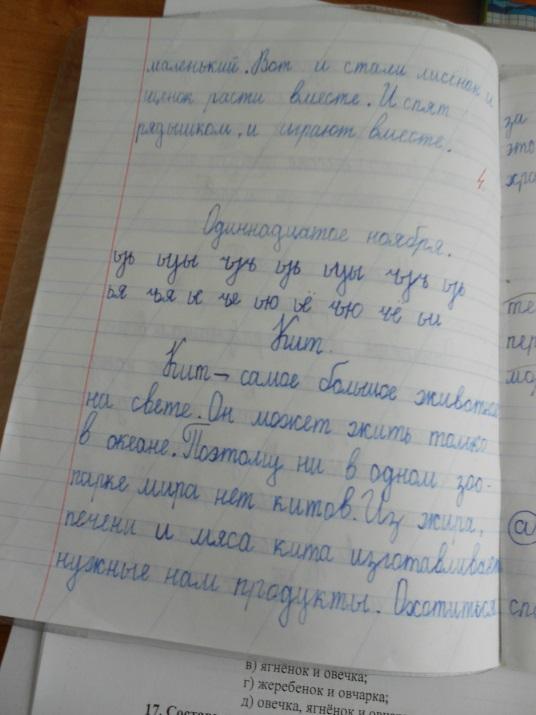 маленький. Вот и стали лисёнок и
щенок расти вместе. И спят
рядышком, и играют вместе.
4
Одиннадцатое ноября.
ья ья ье ье ью ьё ью ьё ьи
Кит.
Кит – самое большое животное
на свете. Он может жить только
в океане. Поэтому ни в одном зоо-
парке мира нет китов. Из жира,
печени и мяса кита изготавливает
нужные нам продукты. Охотиться
за
это
хра
те
пер
мо
а
спо
в) ягнёнок и овечка;
г) жеребенок и овчарка;
д) овечка, ягнёнок и
17.